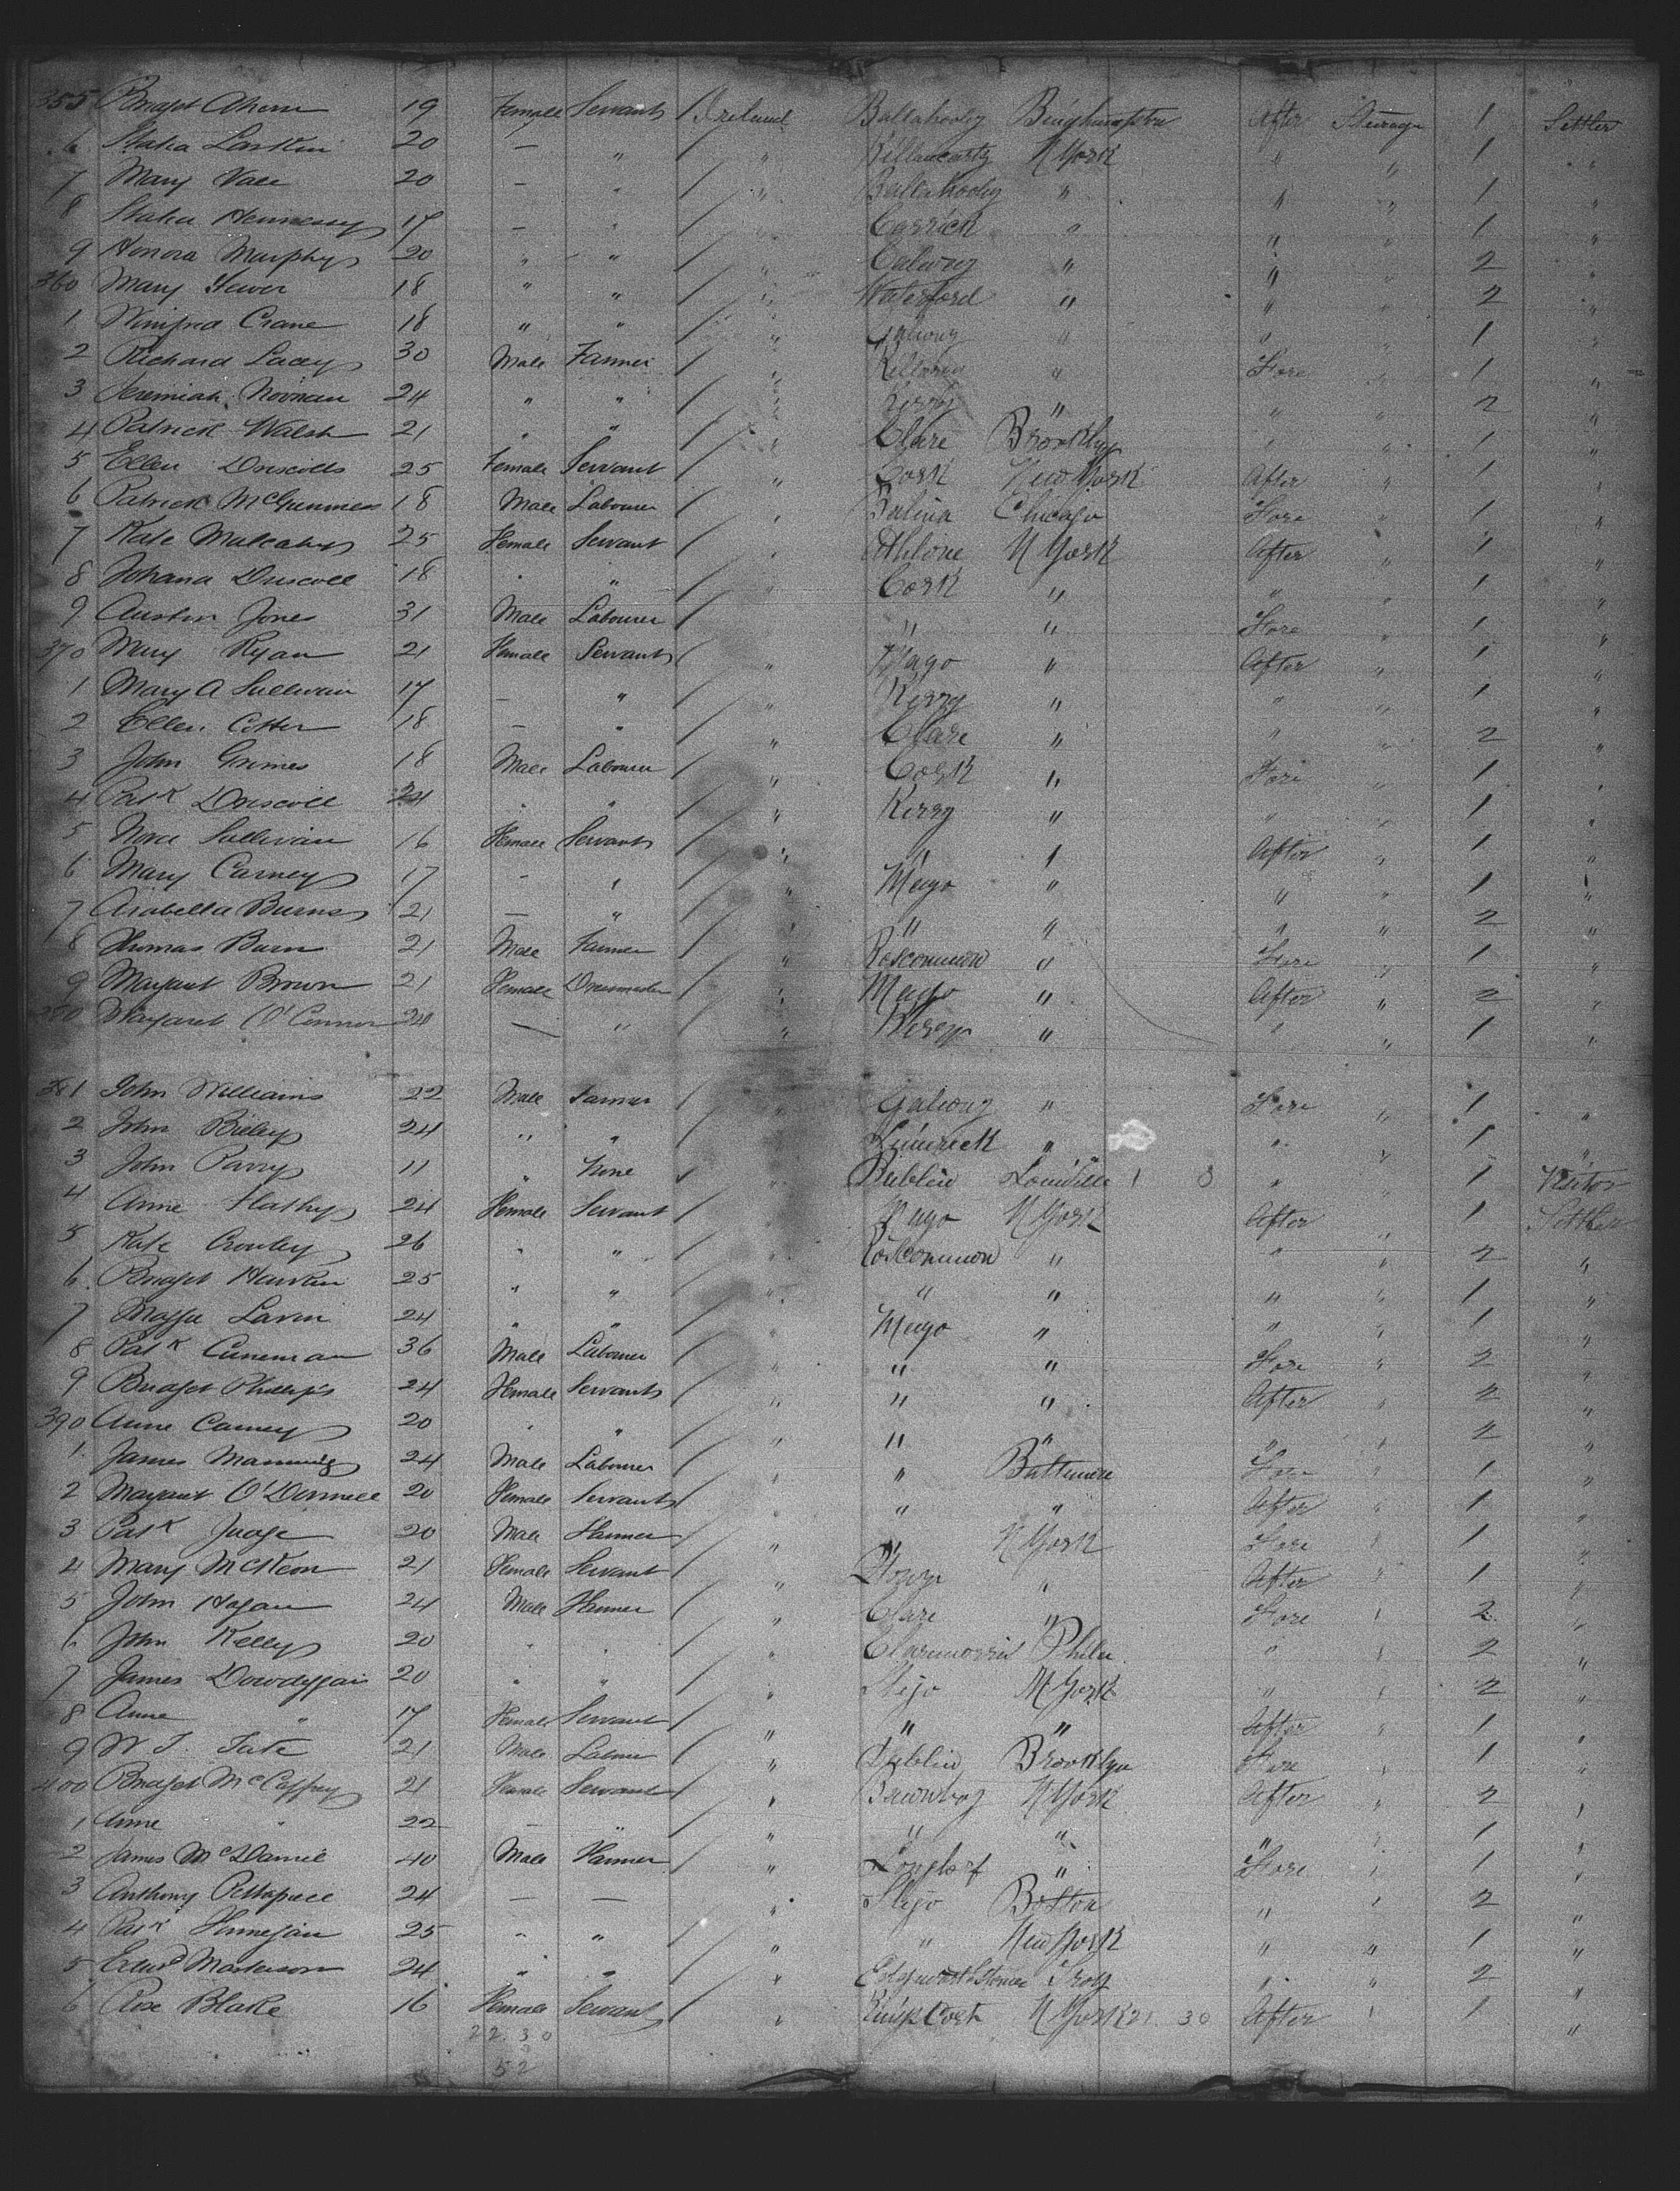 355 Bridget Ahern 19 Female Servant / Ireland Ballahooly Binghampton After Steerage 1 Settler
6 Statia Larkin 20 — " / " N York " " 1 "
7 Mary 20 — " / " Ballahooly " " " 1 "
8 Statia Hennessy 17 — " / " Carrick " " " 1 "
9 Honora Murphy 20 " " / " Galway " " " 2 "
360 Mary 18 " " / " Waterford " " " 2 "
1 Winifred Crane 18 " " / " Galway " " " 1 "
2 Richard Lacey 30 Male Farmer / " " Fore " 1 "
3 Jeremiah Noonan 24 " " / " Kerry " " " 2 "
4 Patrick Walsh 21 " " / " Clare Brooklyn " " 1 "
5 Ellen Driscoll 25 Female Servant / " Cork New York After " 1 "
6 Patrick 18 Male Labourer / " Balina Chicago Fore " 1 "
7 Kate Mulcahy 25 Female Servant / " Athlone N York After " 1 "
8 Johana Driscoll 18 " " / " Cork " " " 1 "
9 Austin Jones 31 Male Labourer / " " Fore " 1 "
370 Mary Ryan 21 Female Servant / " Mayo " After " 1 "
1 Mary A Sullivan 17 — " / " Kerry " " " 1 "
2 Ellen Cotter 18 — " / " Clare " " " 2 "
3 John Grimes 18 Male Labourer / " Cork " Fore " 1 "
4 Patk Driscoll 24 " " / " Kerry " " " 1 "
5 Nora Sullivan 16 Female Servant / " " " After " 1 "
6 Mary Carney 17 — " / " Mayo " " " 1 "
7 Arabella Burns 21 — " / " " " " " 2 "
8 Thomas Burn 21 Male Farmer / " Roscommon " Fore " 1 "
9 Margaret Brown 21 Female Dressmaker / " Mayo " After " 2 "
380 Margaret O'Connor 20 — " " Kerry " " " 1 "
381 John Williams 22 Male Farmer / " Galway " Fore " 1 "
2 John 24 " " / Limerick " " " 1 "
3 John Parry 11 " None " Dublin Louisville 1 " 1 Visitor
4 Anne 24 Female Servant / Mayo N York After " 1 Settler
5 Kate Crowley 26 " " / " Roscommon " " " 2 "
6 Bridget 25 " " / " " " " " 1 "
7 Maggie Lavin 24 " " / " Mayo " " " 1 "
8 Patk 36 Male Labourer / " " " Fore " 2 "
9 Bridget Phillips 24 Female Servant / " " " After " 2 "
390 Anne Carney 20 " " / " " " " " 2 "
1 James Manning 24 Male Labourer / " " Baltimore Fore " 1 "
2 Margaret O'Donnell 20 Female Servant / " " " After " 1 "
3 Patk Judge 20 Male Farmer / " " N York Fore " 1 "
4 Mary McKeon 21 Female Servant / " " After " 1 "
5 John Hogan 24 Male Farmer / " Clare " Fore " 2 "
6 John Kelly 20 " " / " Claremorris Phila. " " 2 "
7 James 20 " " / " Sligo N York " " 2 "
8 Anne " 17 Female Servant / " " " After " 1 "
9 W J Tate 21 Male Labour / " Dublin Brooklyn Fore " 1 "
400 Bridget McCaffrey 21 Female Servant / " Bawnboy N York After " 2 "
1 Anne " 22 — " / " " " " " 1 "
2 James McDaniel 40 Male Farmer / " Longford " Fore " 1 "
3 Anthony 24 — — " Sligo Boston " " 2 "
4 Patk 25 " " / " " New York " " 1 "
5 Edwd Masterson 24 " " / " Troy " " 2 "
6 Rose Blake 16 Female Servant / " N York 21 30 After " 1 "
22 30
52